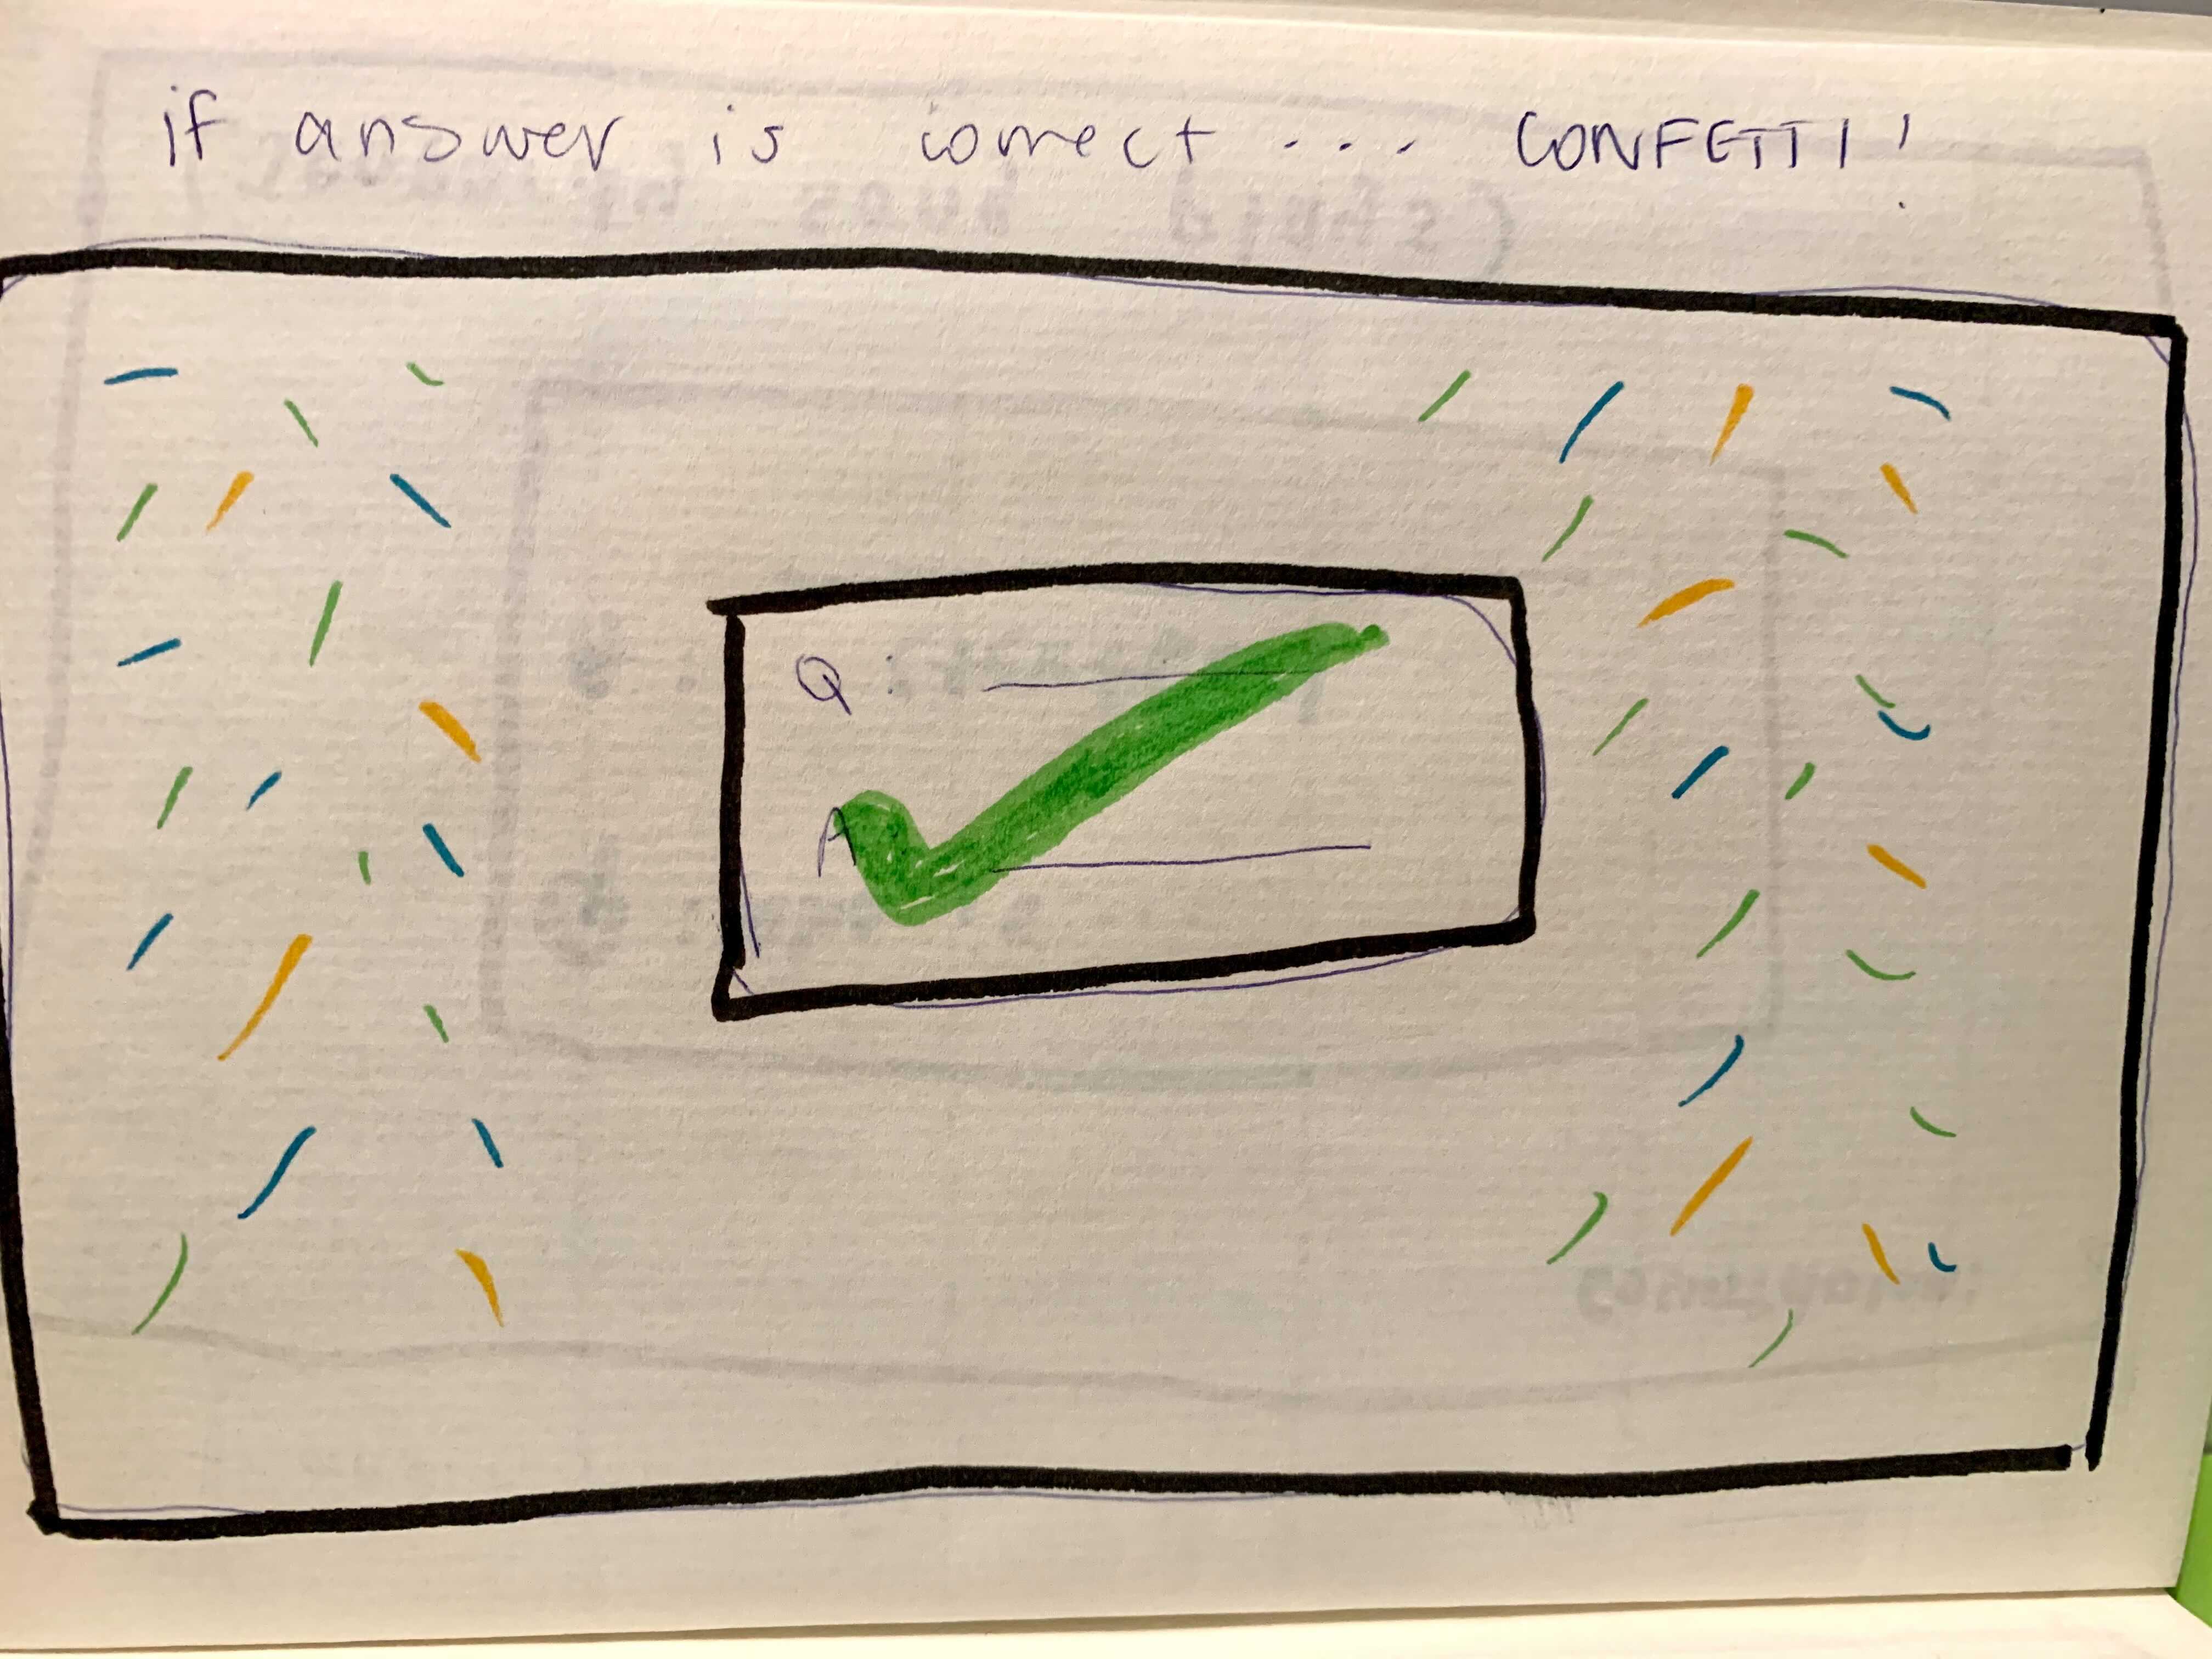 if answer is correct... CONFETTI!
Q:
A